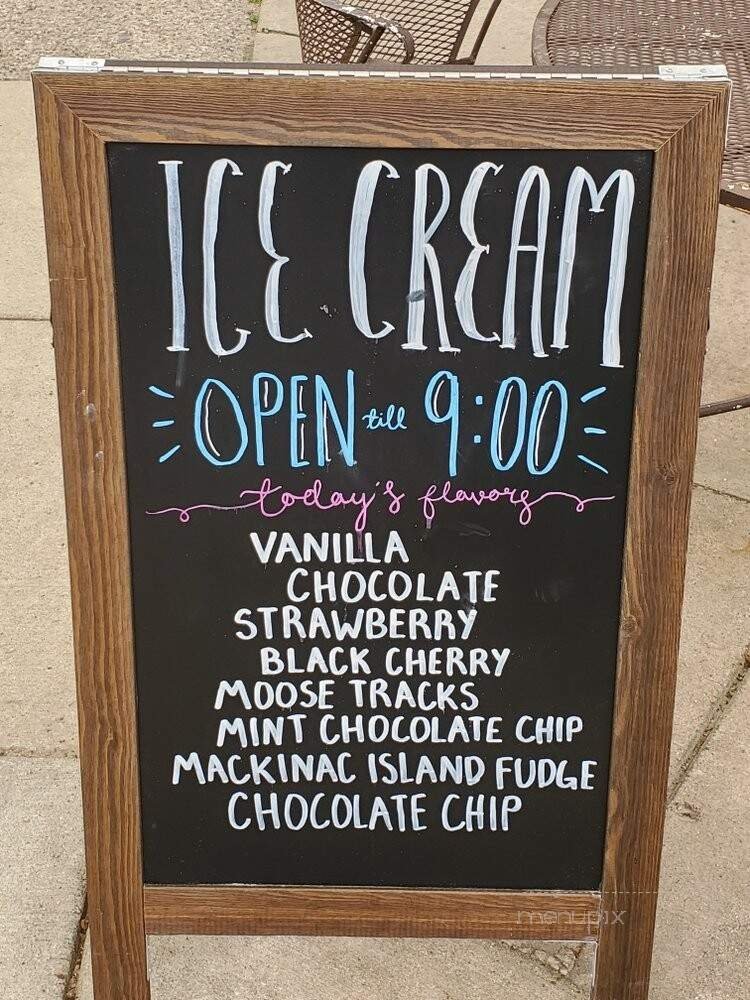 ICE CREAM
OPEN till 9:00
today's flavors
VANILLA
CHOCOLATE
STRAWBERRY
BLACK CHERRY
MOOSE TRACKS
MINT CHOCOLATE CHIP
MACKINAC ISLAND FUDGE
CHOCOLATE CHIP
menupix